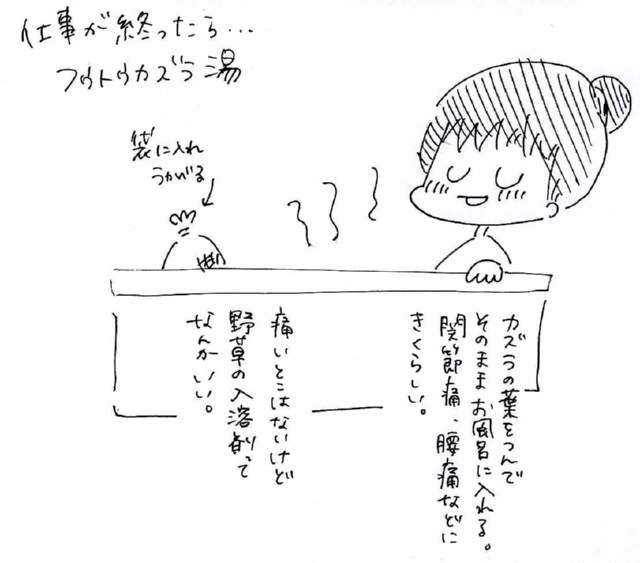 仕事が終ったら…
フウトウカズラ湯
袋に入れ
うかべる
カズラの葉をつんで
そのままお風呂に入れる。
関節痛、腰痛などに
きくらしい。
痛いとこはないけど
野草の入溶剤って
なんかいい。